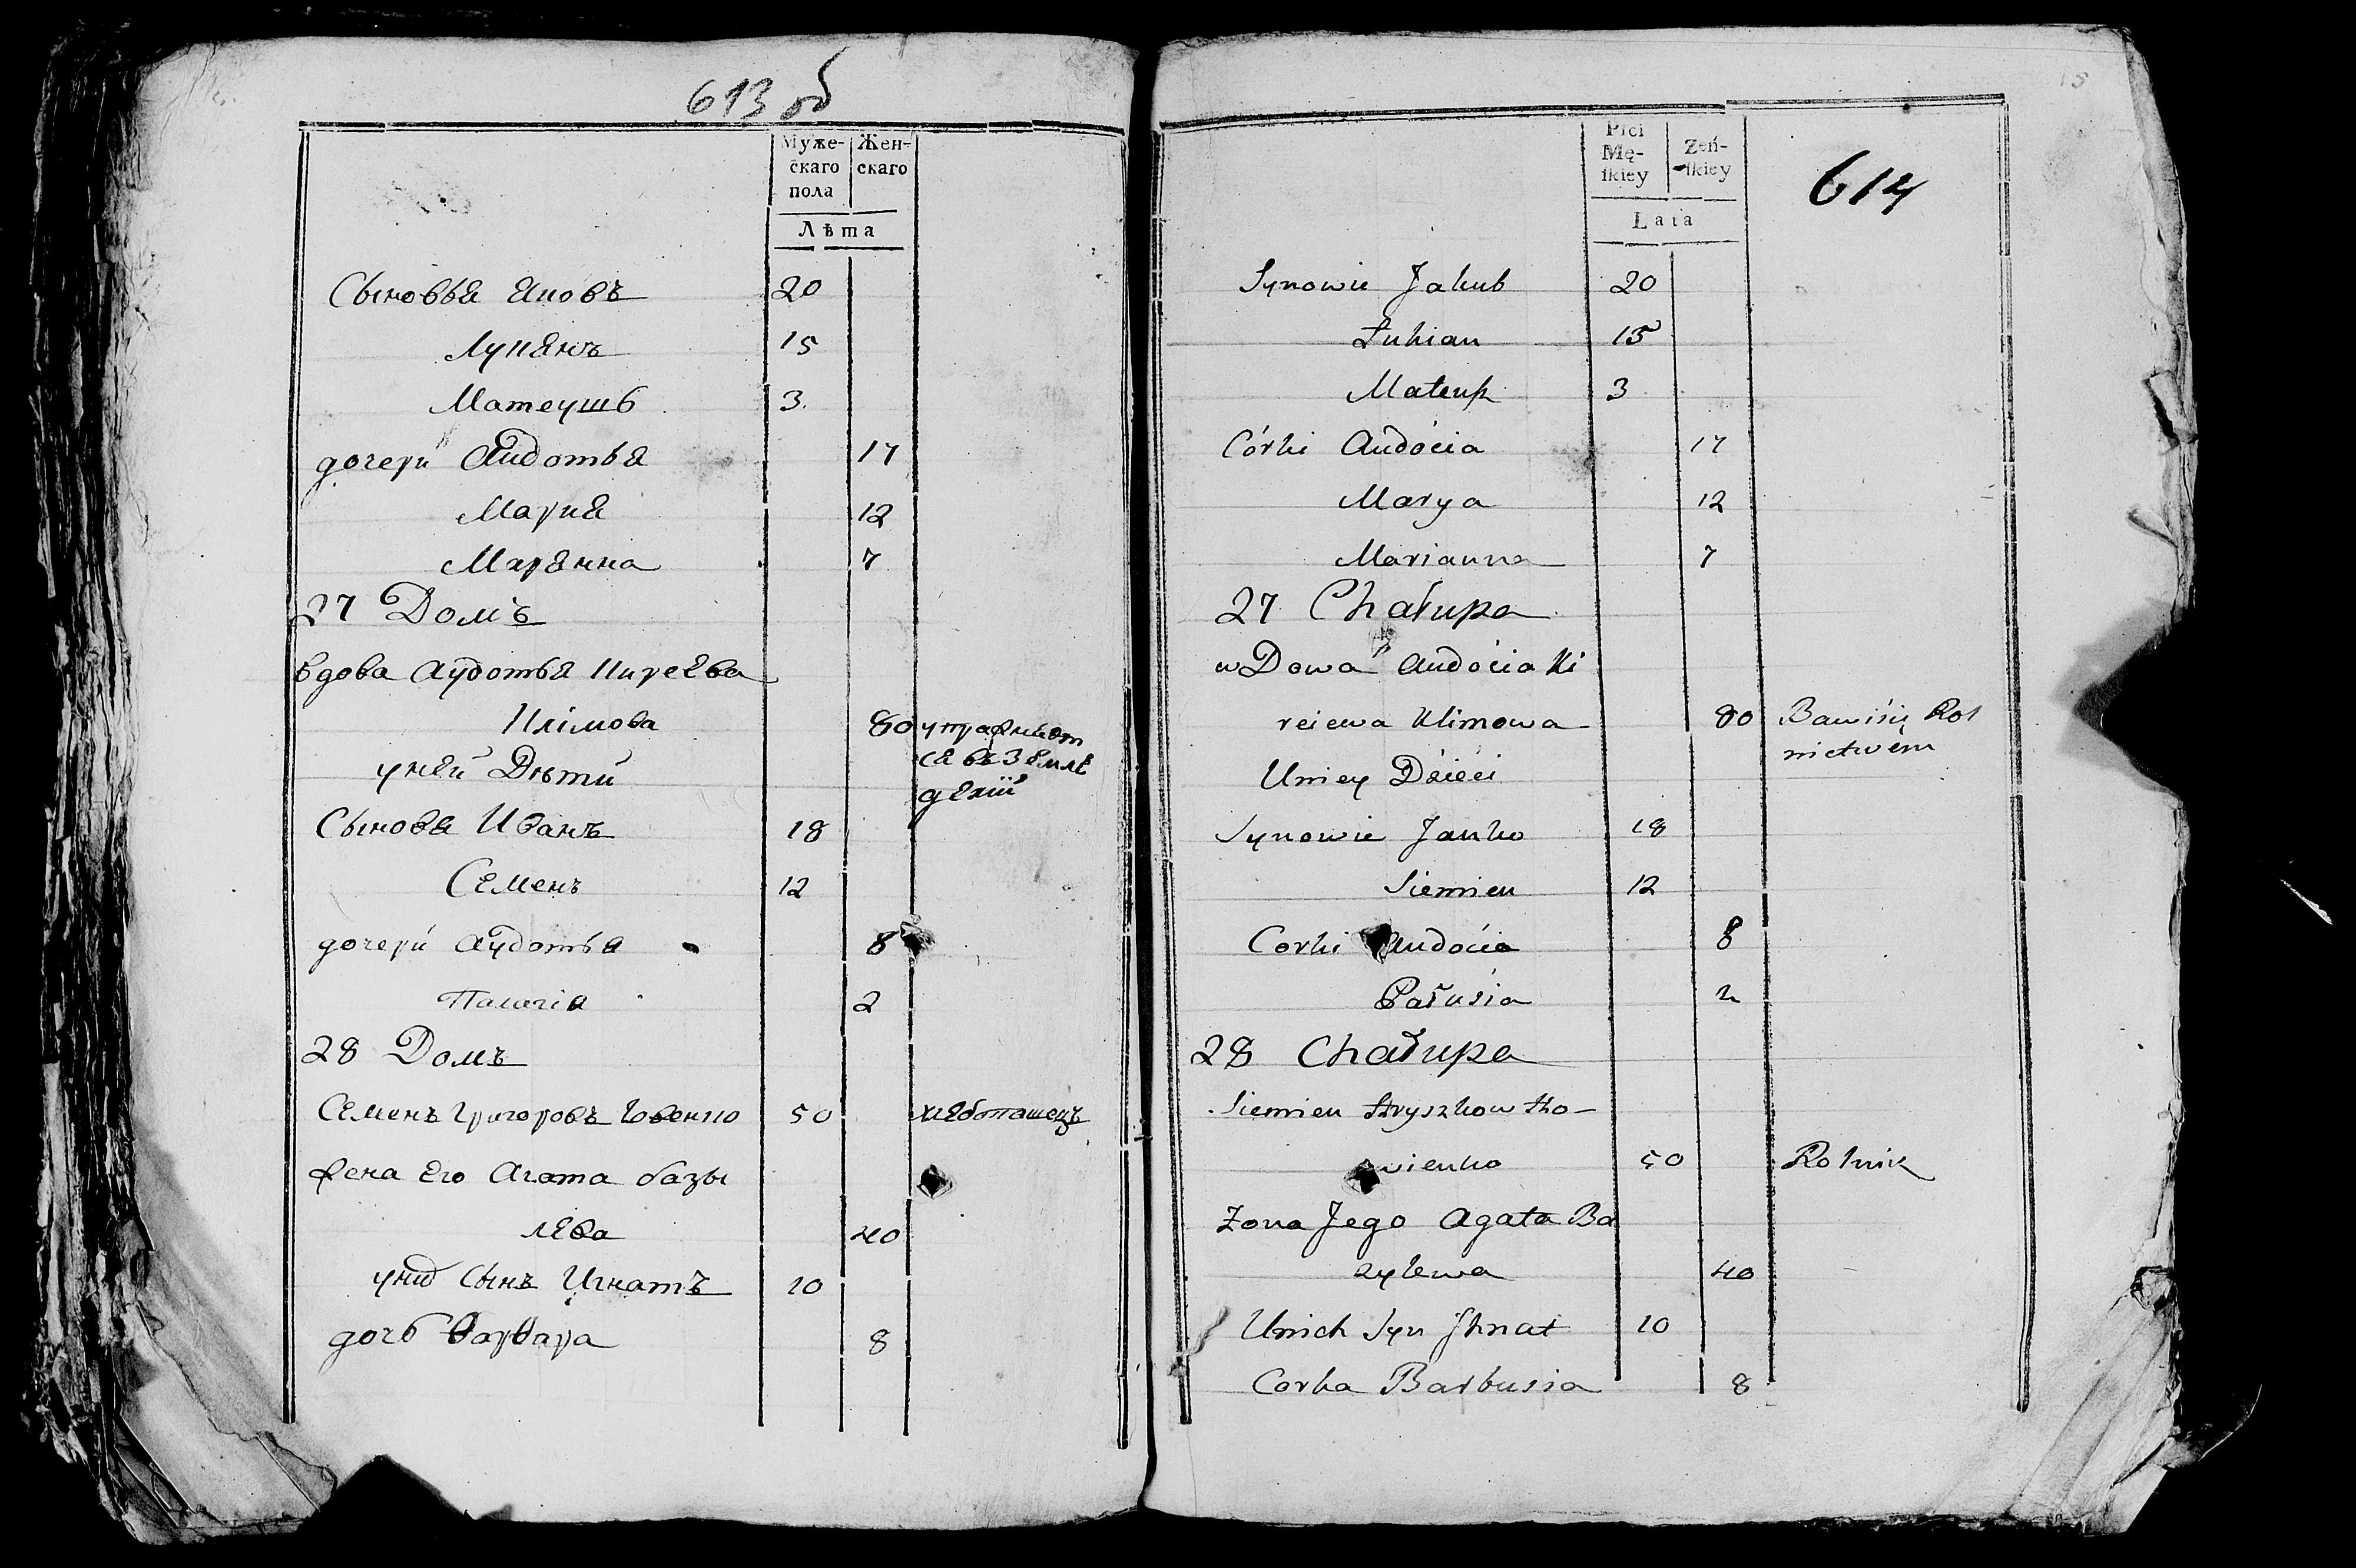 613 об
Муже-
скаго
пола
Жен-
скаго
Лѣта
Сыновья Яковъ 20
Лукянъ 15
Матеушь 3
дочери Аудотья 17
Мария 12
Марянна 7
27 Домъ
вдова Аудотья Киреева
Клiмова 80 упражняет
ся въ Земле
делiи
уней Дѣти
Сыновя Иванъ 18
Семенъ 12
дочери Аудотья 8
Палагiя 2
28 Домъ
Семенъ Григоровъ 50 хлебопашецъ
жена Его Агата базы
лева 40
уних Сынъ Игнатъ 10
дочь Варвара 8
614
Płci
Mę-
ſkiey
Żeń-
ſkiey
Lata
Synowie Jakub 20
Łukian 15
Mateuſz 3
Córki Audocia 17
Marya 12
Marianna 7
27 Chałupa
wDowa Audocia Ki
reiewa Klimowa 80 Bawi się Rol
nictwem
Uniey Dzieci
Synowie Janko 18
Siemien 12
Corki Audocia 8
Pałusia 2
28 Chałupa
Siemien Hryszkow
wienko 50 Rolnik
Żona Jego Agata Ba
zylewa 40
Unich Syn Jhnat 10
Corka Barbusia 8